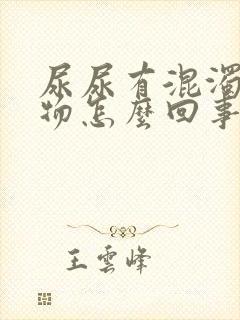 尿尿有混濁
物怎麼回事
王雲峰